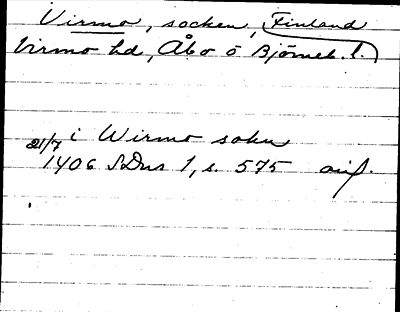 Virmo, socken, Finland
Virmo hd, Åbo ö Björneb. l.
i Wirmo sokn
21/7 1406 SDns 1, s. 575 orig.